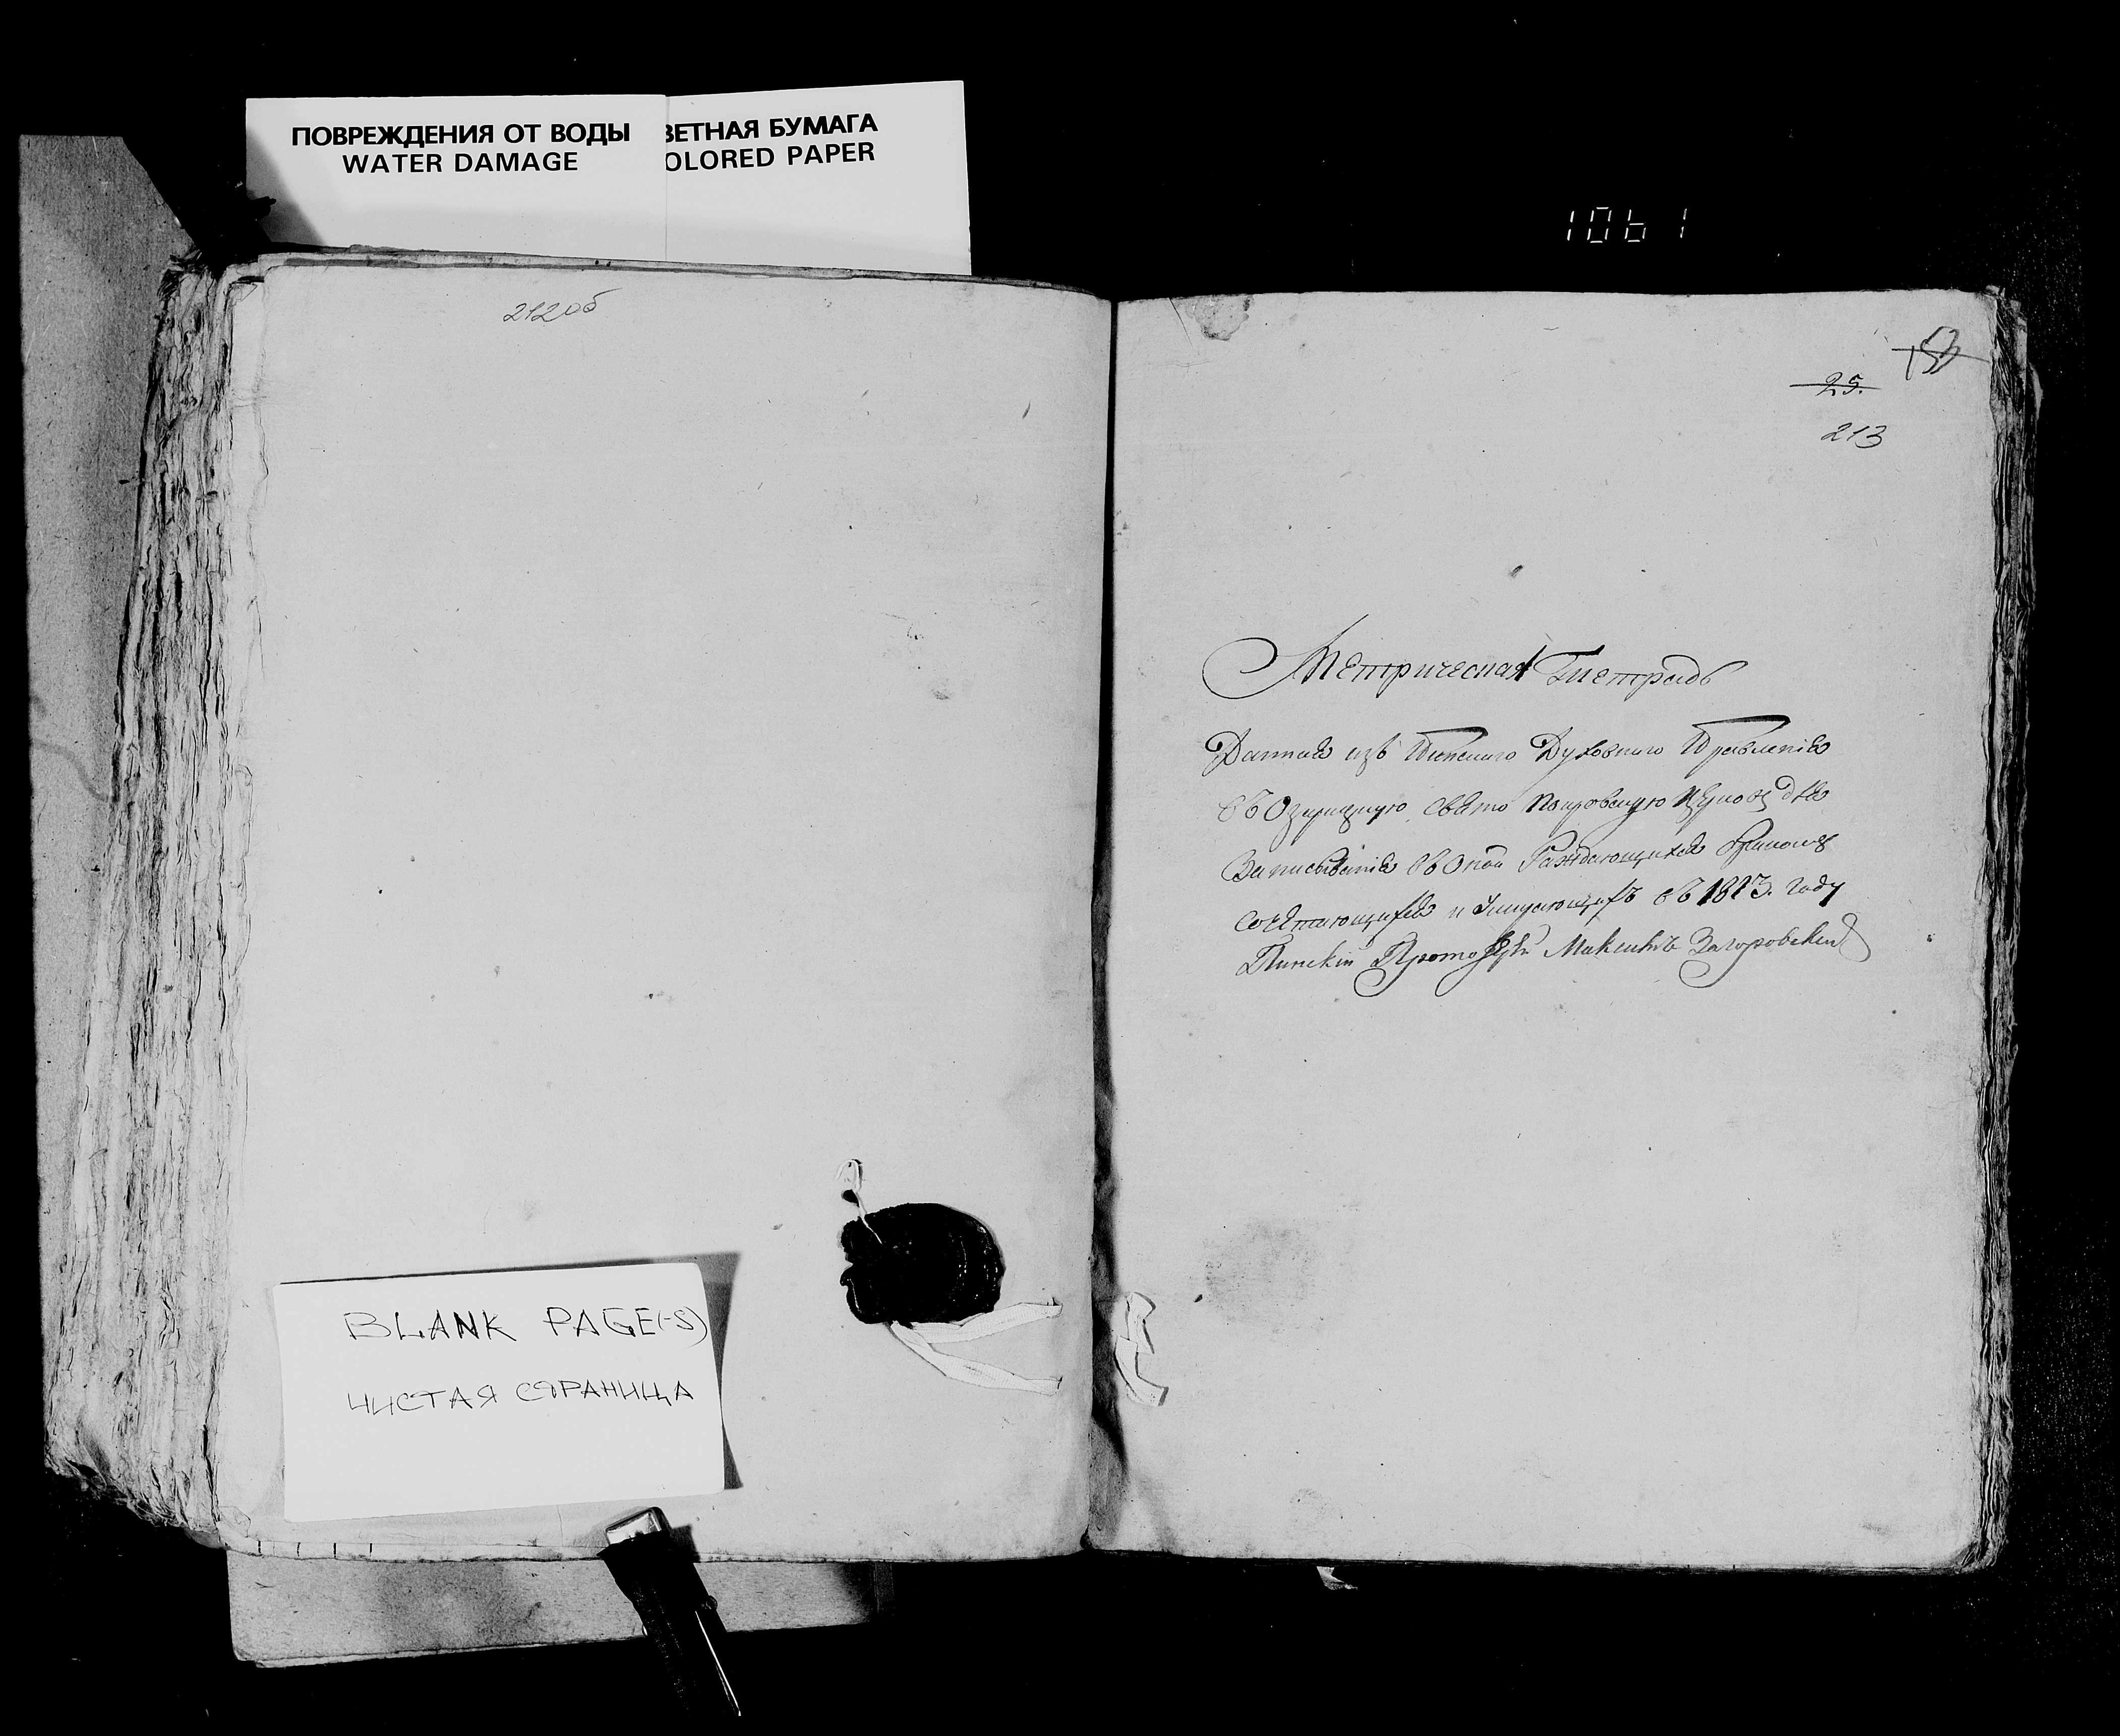 ПОВРЕЖДЕНИЯ ОТ ВОДЫ
WATER DAMAGE
ВЕТНАЯ БУМАГА
OLORED PAPER
1061
212об
153
25.
213
Метрическая Тетрадь
Данная изъ Пинскаго Духовнаго Правленія
въ Озерицкую Свято Покровскую Церковь для
Записыванія въ Оной Раждающихся Бракомъ
Сочетающихся и Умирающихъ въ 1813. Году
Пинскій Протоіерей Максимъ Загоровскій
BLANK PAGE(-S)
ЧИСТАЯ СТРАНИЦА